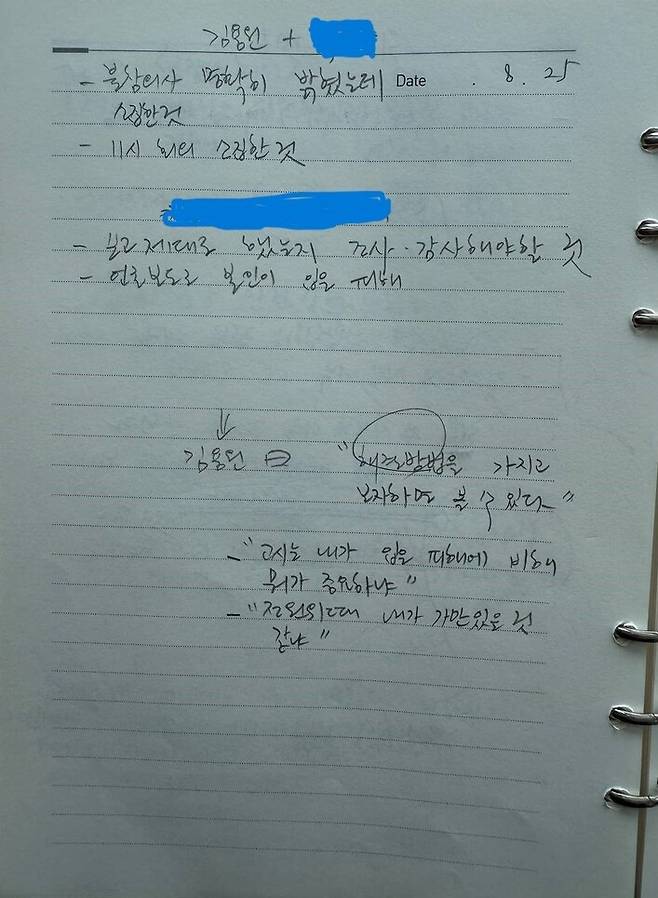 김용원 +
- 불참의사 명확히 밝혔는데 Date . 8. 25
소집한것
- 11시 회의 소집한 것
- 보고 제대로 했는지 조사·감사해야할 것
- 언론보도로 본인이 입을 피해
↓
김용원 曰 "해결방법을 가지고
보자하면 볼 수 있다"
- "고시는 내가 입을 피해에 비해
뭐가 중요하냐"
- "전원위때 내가 가만있을 것
같냐"